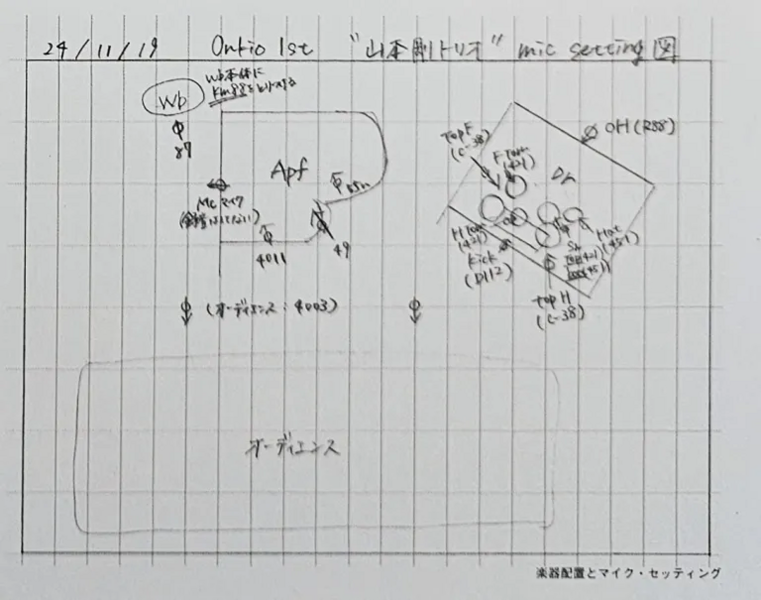 24/11/19 Onkio 1st "山本剛トリオ" mic setting 図
Wb
Wb本体に
Km88をとりつける
87
Apf
MCマイク
4011
49
(オーディエンス:4003)
オーディエンス
Dr
OH(R88)
Top F
(C-38)
F Tom
(421)
H Tom
(421)
Kick
(D112)
Hat
(451)
Sn
Top(421)
Top H
(C-38)
楽器配置とマイク・セッティング